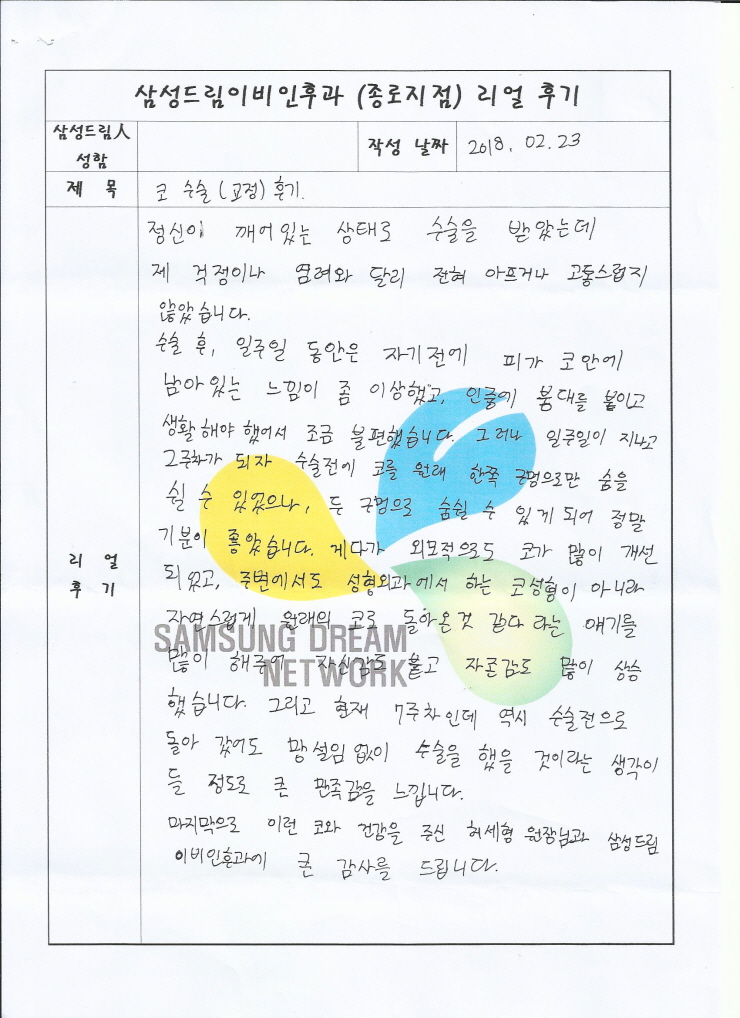 삼성드림이비인후과 (종로지점) 리얼 후기
삼성드림人
성함
작성 날짜 2018. 02. 23
제 목 코 수술 (교정) 후기.
정신이 깨어있는 상태로 수술을 받았는데
제 걱정이나 염려와 달리 전혀 아프거나 고통스럽지
않았습니다.
수술 후, 일주일 동안은 자기전에 피가 코안에
남아있는 느낌이 좀 이상했고, 인중에 붕대를 붙이고
생활해야 했어서 조금 불편했습니다. 그러나 일주일이 지나고
2주차가 되자 수술전에 코를 원래 한쪽 구멍으로만 숨을
쉴 수 있었으나, 두 구멍으로 숨쉴 수 있게 되어 정말
기분이 좋았습니다. 게다가 외모적으로도 코가 많이 개선
리 얼
후 기
되었고, 주변에서도 성형외과에서 하는 코성형이 아니라
자연스럽게 원래의 코로 돌아온것 같다 라는 얘기를
많이 해주어 자신감도 붙고 자존감도 많이 상승
했습니다. 그리고 현재 7주차인데 역시 수술전으로
돌아 갔어도 망설임없이 수술을 했을 것이라는 생각이
들 정도로 큰 만족감을 느낍니다.
마지막으로 이런 코와 건강을 주신 허세형 원장님과 삼성드림
이비인후과에 큰 감사를 드립니다.
SAMSUNG DREAM
NETWORK